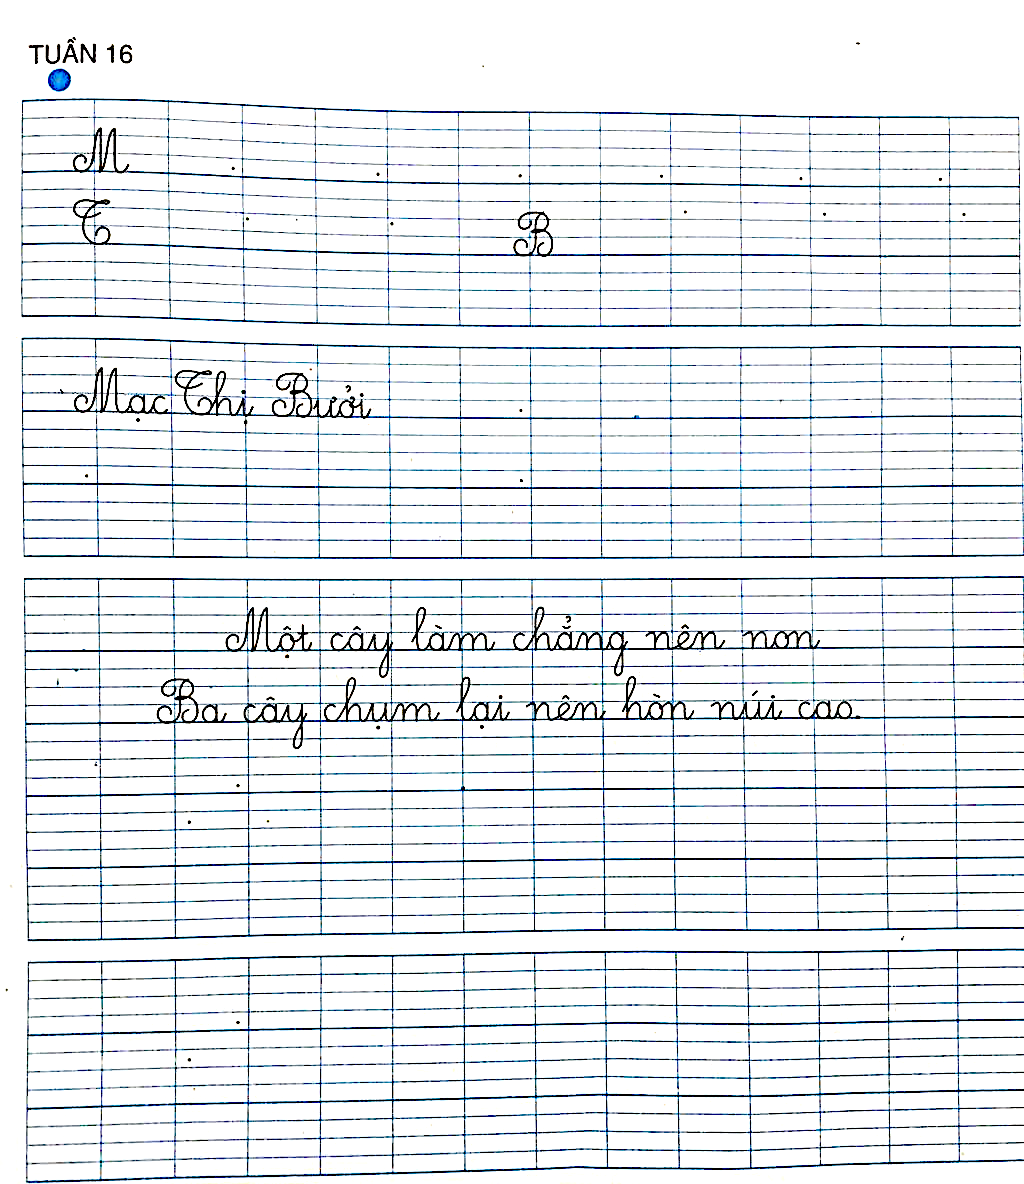 TUẦN 16
M
T B
Mạc Thị Bưởi
Một cây làm chẳng nên non
Ba cây chụm lại nên hòn núi cao.